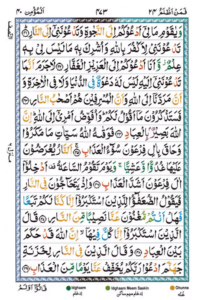 المؤمن ۴۰ ۴۷۳ فمن اظلم ۲۴
وَيٰقَوْمِ مَا لِىْٓ اَدْعُوْكُمْ اِلَى النَّجٰوةِ وَتَدْعُوْنَنِىْٓ اِلَى النَّارِ
تَدْعُوْنَنِىْ لِاَكْفُرَ بِاللّٰهِ وَاُشْرِكَ بِهٖ مَا لَيْسَ لِىْ بِهٖ
عِلْمٌ وَّاَنَا اَدْعُوْكُمْ اِلَى الْعَزِيْزِ الْغَفَّارِ لَا جَرَمَ اَنَّمَا
تَدْعُوْنَنِىْٓ اِلَيْهِ لَيْسَ لَهٗ دَعْوَةٌ فِى الدُّنْيَا وَلَا فِى الْاٰخِرَةِ وَاَنَّ
مَرَدَّنَآ اِلَى اللّٰهِ وَاَنَّ الْمُسْرِفِيْنَ هُمْ اَصْحٰبُ النَّارِ
فَسَتَذْكُرُوْنَ مَآ اَقُوْلُ لَكُمْ وَاُفَوِّضُ اَمْرِىْٓ اِلَى اللّٰهِ اِنَّ
اللّٰهَ بَصِيْرٌۢ بِالْعِبَادِ فَوَقٰىهُ اللّٰهُ سَيِّاٰتِ مَا مَكَرُوْا
وَحَاقَ بِاٰلِ فِرْعَوْنَ سُوْٓءُ الْعَذَابِ اَلنَّارُ يُعْرَضُوْنَ
عَلَيْهَا غُدُوًّا وَّعَشِيًّا وَيَوْمَ تَقُوْمُ السَّاعَةُ اَدْخِلُوْٓا
اٰلَ فِرْعَوْنَ اَشَدَّ الْعَذَابِ وَاِذْ يَتَحَآجُّوْنَ فِى النَّارِ
فَيَقُوْلُ الضُّعَفٰٓؤُا لِلَّذِيْنَ اسْتَكْبَرُوْٓا اِنَّا كُنَّا لَكُمْ تَبَعًا
فَهَلْ اَنْتُمْ مُّغْنُوْنَ عَنَّا نَصِيْبًا مِّنَ النَّارِ قَالَ
الَّذِيْنَ اسْتَكْبَرُوْٓا اِنَّا كُلٌّ فِيْهَآ اِنَّ اللّٰهَ قَدْ حَكَمَ
بَيْنَ الْعِبَادِ وَقَالَ الَّذِيْنَ فِى النَّارِ لِخَزَنَةِ
جَهَنَّمَ ادْعُوْا رَبَّكُمْ يُخَفِّفْ عَنَّا يَوْمًا مِّنَ الْعَذَابِ